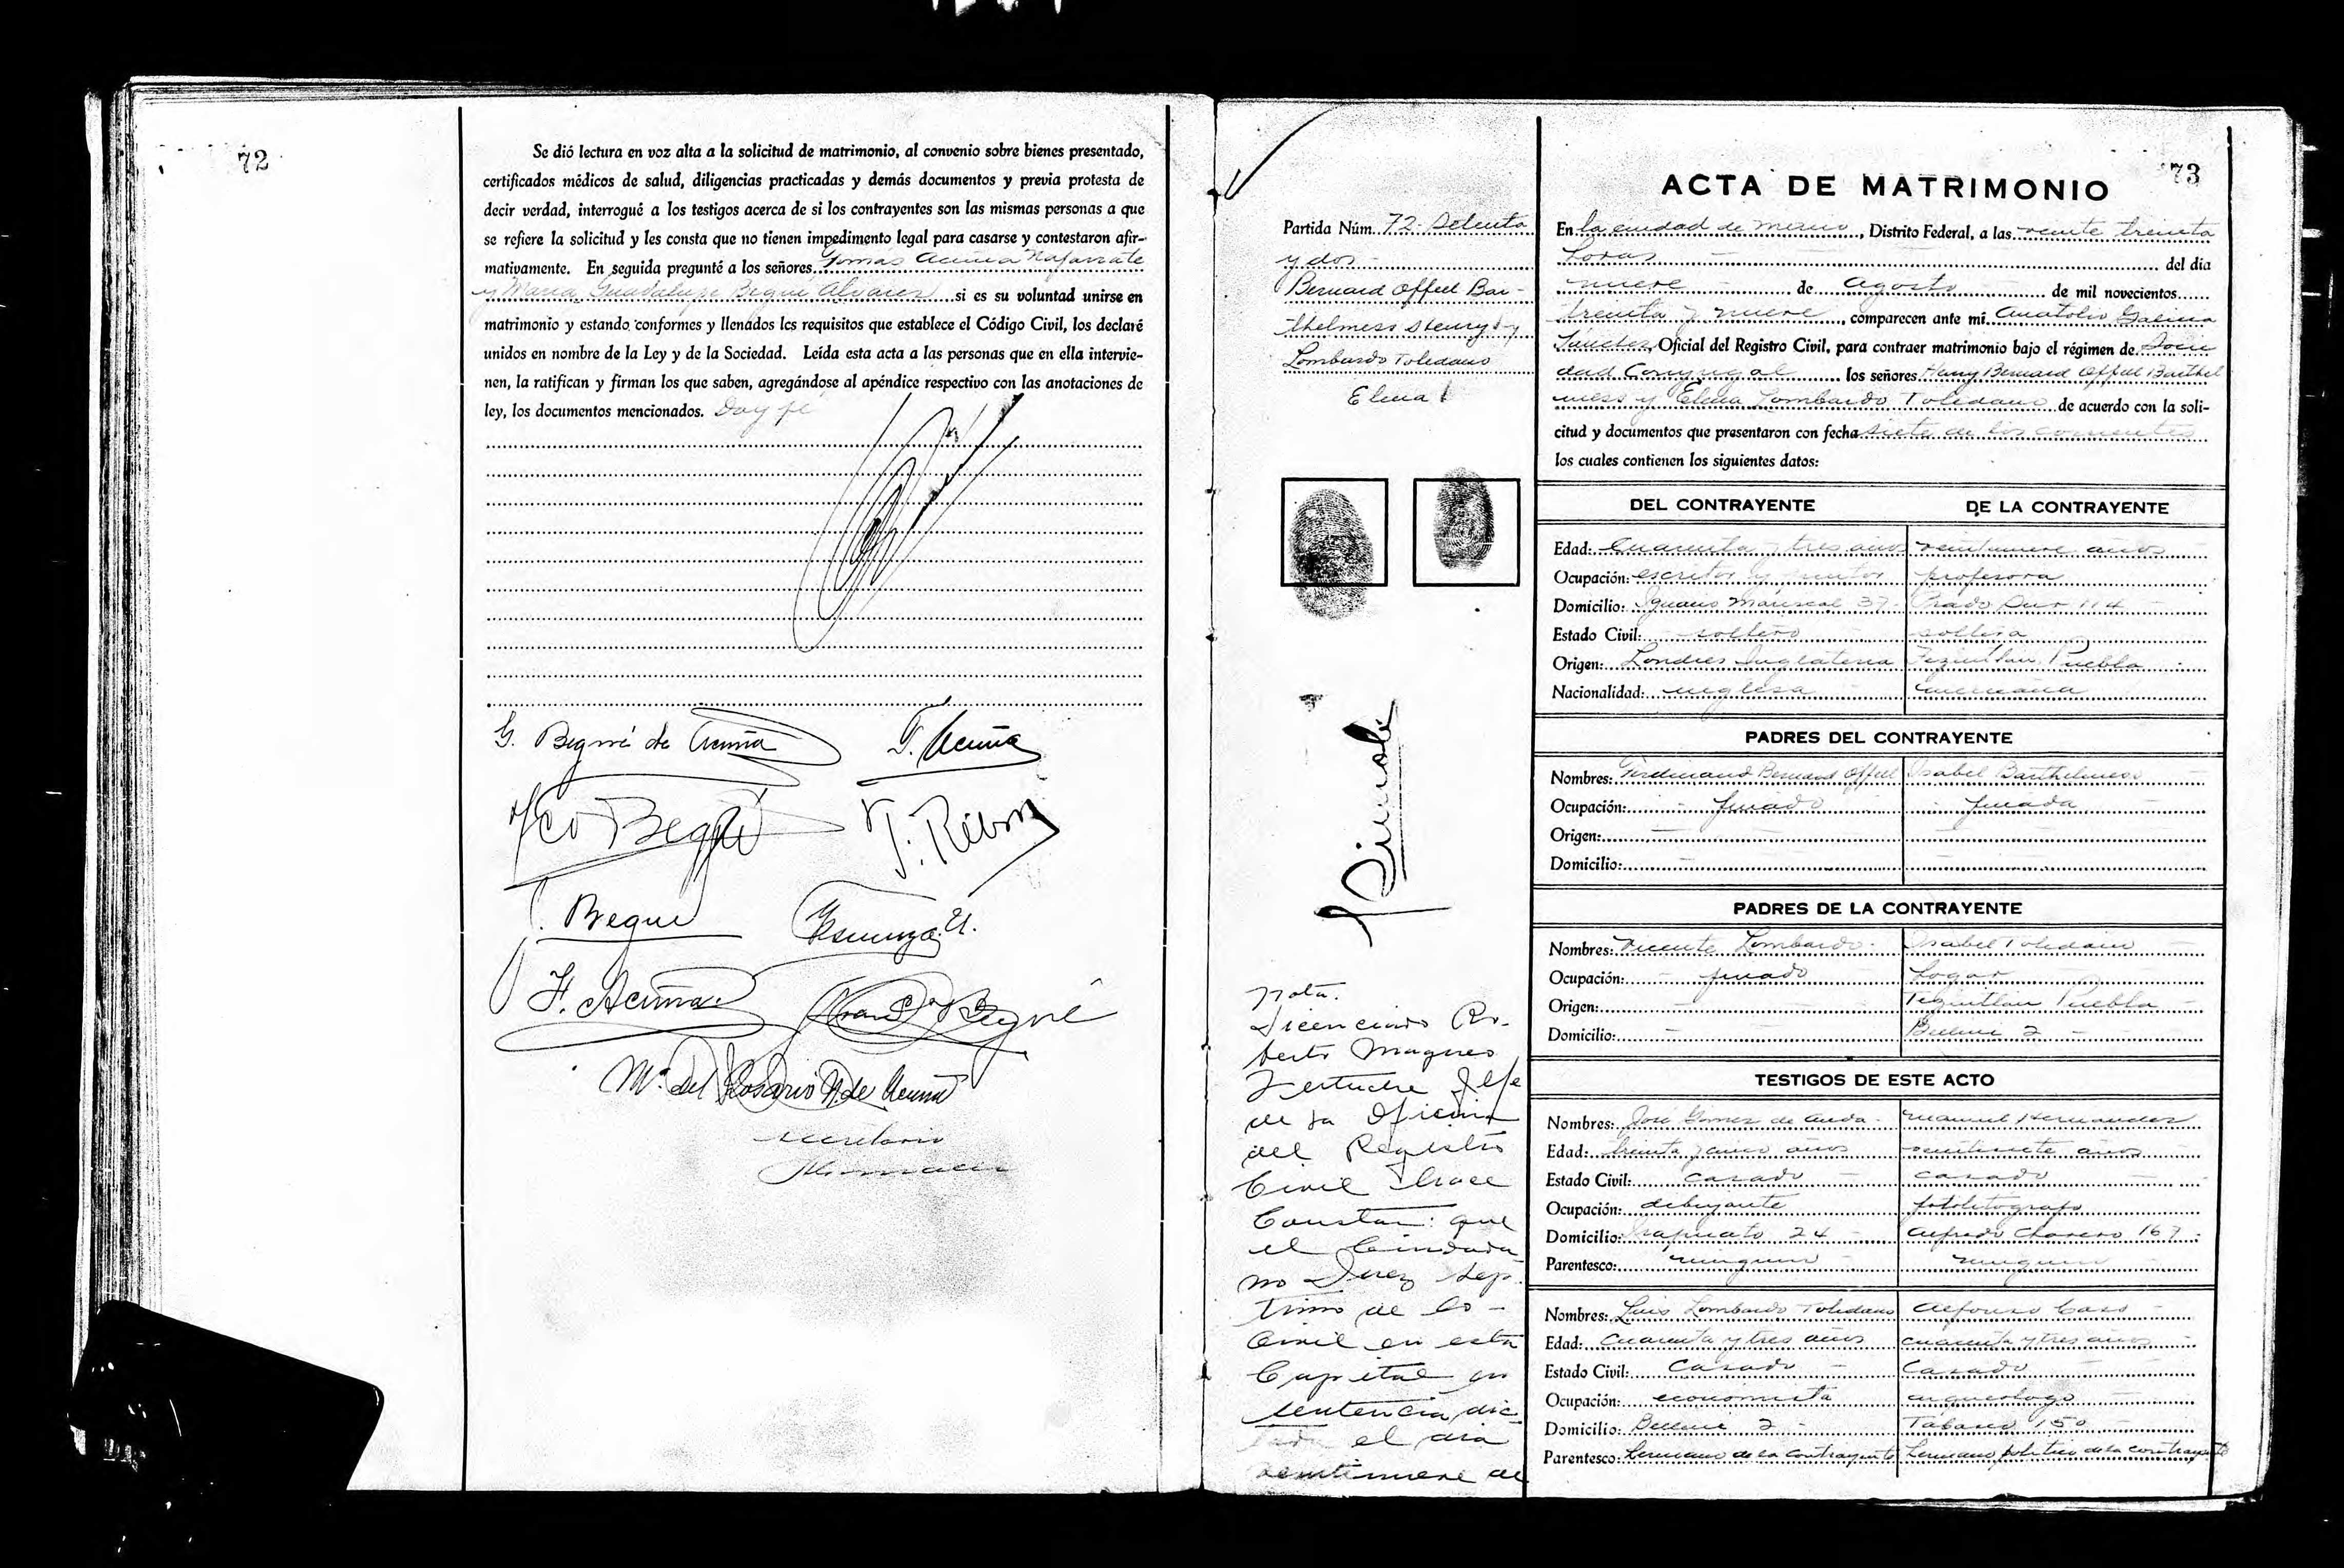 72
Se dió lectura en voz alta a la solicitud de matrimonio, al convenio sobre bienes presentado,
certificados médicos de salud, diligencias practicadas y demás documentos y previa protesta de
decir verdad, interrogué a los testigos acerca de si los contrayentes son las mismas personas a que
se refiere la solicitud y les consta que no tienen impedimento legal para casarse y contestaron afir-
mativamente. En seguida pregunté a los señores Tomás Acuña Najarrate
y María Guadalupe Begné Alvarez si es su voluntad unirse en
matrimonio y estando conformes y llenados los requisitos que establece el Código Civil, los declaré
unidos en nombre de la Ley y de la Sociedad. Leída esta acta a las personas que en ella intervie-
nen, la ratifican y firman los que saben, agregándose al apéndice respectivo con las anotaciones de
ley, los documentos mencionados. Doy fe
G. Begné de Acuña T. Acuña
Fco Begné
Begné
F. Acuña Begné
Ma. del Rosario N. de Acuña
secretario
73
Partida Núm. 72. Setenta
y dos
Bernard Offeel Bar-
thelmess Henry y
Lombardo Toledano
Elena
Nota.
Licenciado Ro-
berto
Jefe
de la Oficina
del Registro
Civil Hace
Constar: que
el Ciudada
no Juez Sép
timo de lo
Civil en esta
Capital en
sentencia dic
tada el día
veintinueve de
ACTA DE MATRIMONIO
En la ciudad de México, Distrito Federal, a las veinte treinta
horas del día
nueve de Agosto de mil novecientos
treinta y nueve, comparecen ante mí Anatolio Galina
Sánchez, Oficial del Registro Civil, para contraer matrimonio bajo el régimen de Socie
dad Conyugal los señores Henry Bernard Offeel Barthel
mess y Elena Lombardo Toledano de acuerdo con la soli-
citud y documentos que presentaron con fecha siete de los corrientes
los cuales contienen los siguientes datos:
DEL CONTRAYENTE DE LA CONTRAYENTE
Edad: cuarenta y tres años veintinueve años
Ocupación: escritor y pintor profesora
Domicilio: Ignacio Mariscal 37 Prado Sur 114
Estado Civil: soltero soltera
Origen: Londres Inglaterra Teziutlan Puebla
Nacionalidad: inglesa mexicana
PADRES DEL CONTRAYENTE
Nombres: Ferdinand Bernard Offeel Isabel Barthelmess
Ocupación: finado finada
Origen:
Domicilio:
PADRES DE LA CONTRAYENTE
Nombres: Vicente Lombardo Isabel Toledano
Ocupación: finado hogar
Origen: Teziutlan Puebla
Domicilio: 2
TESTIGOS DE ESTE ACTO
Nombres: José Gomez de Anda Manuel Hernandez
Edad: treinta y cinco años veintisiete años
Estado Civil: casado casado
Ocupación: dibujante fotolitografo
Domicilio: Irapuato 24 Alfredo Chavero 167
Parentesco: ninguno ninguno
Nombres: Luis Lombardo Toledano Alfonso Caso
Edad: cuarenta y tres años cuarenta y tres años
Estado Civil: Casado Casado
Ocupación: economista arqueologo
Domicilio: 2 Tabasco 150
Parentesco: hermano de la contrayente hermano político de la contrayente